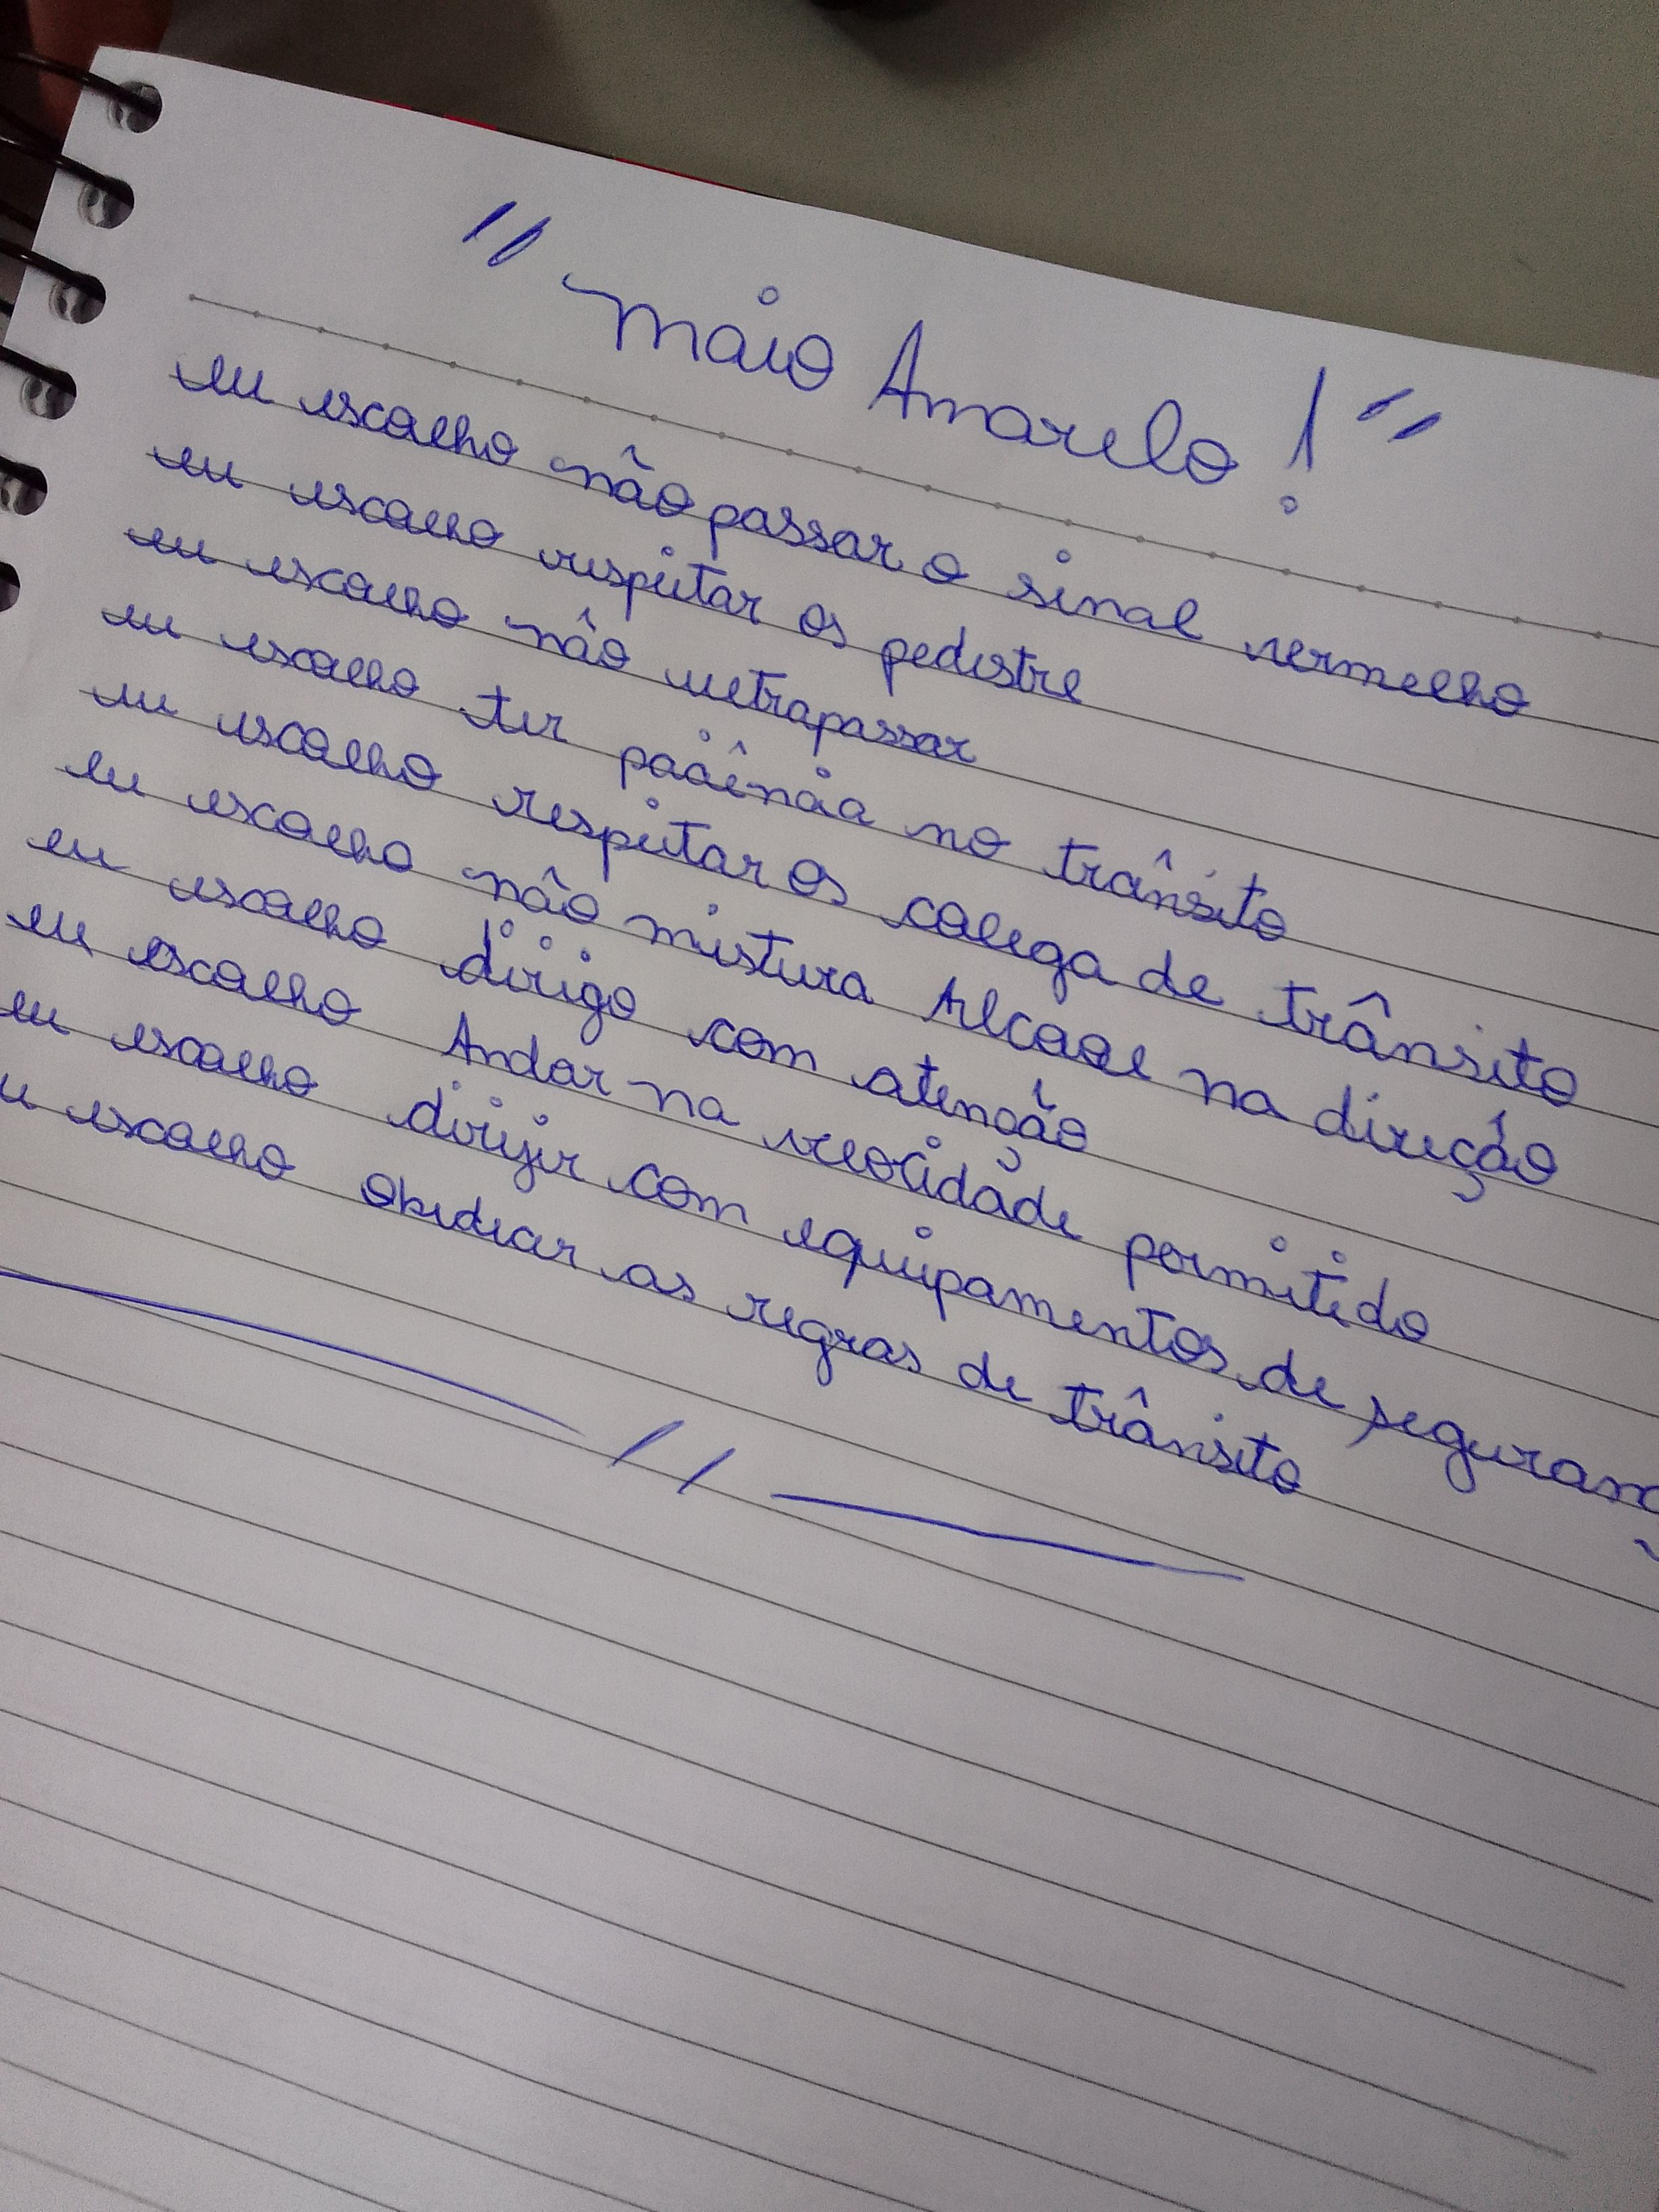 "Maio Amarelo!"
eu escolho não passar o sinal vermelho
eu escolho respeitar os pedestre
eu escolho não ultrapassar
eu escolho ter paciência no trânsito
eu escolho respeitar os colega de trânsito
eu escolho não mistura Alcool na direção
eu escolho dirigo com atenção
eu escolho Andar na velocidade permitido
eu escolho dirijir com equipamentos de seguranç
u escolho obedecer as regras de trânsito